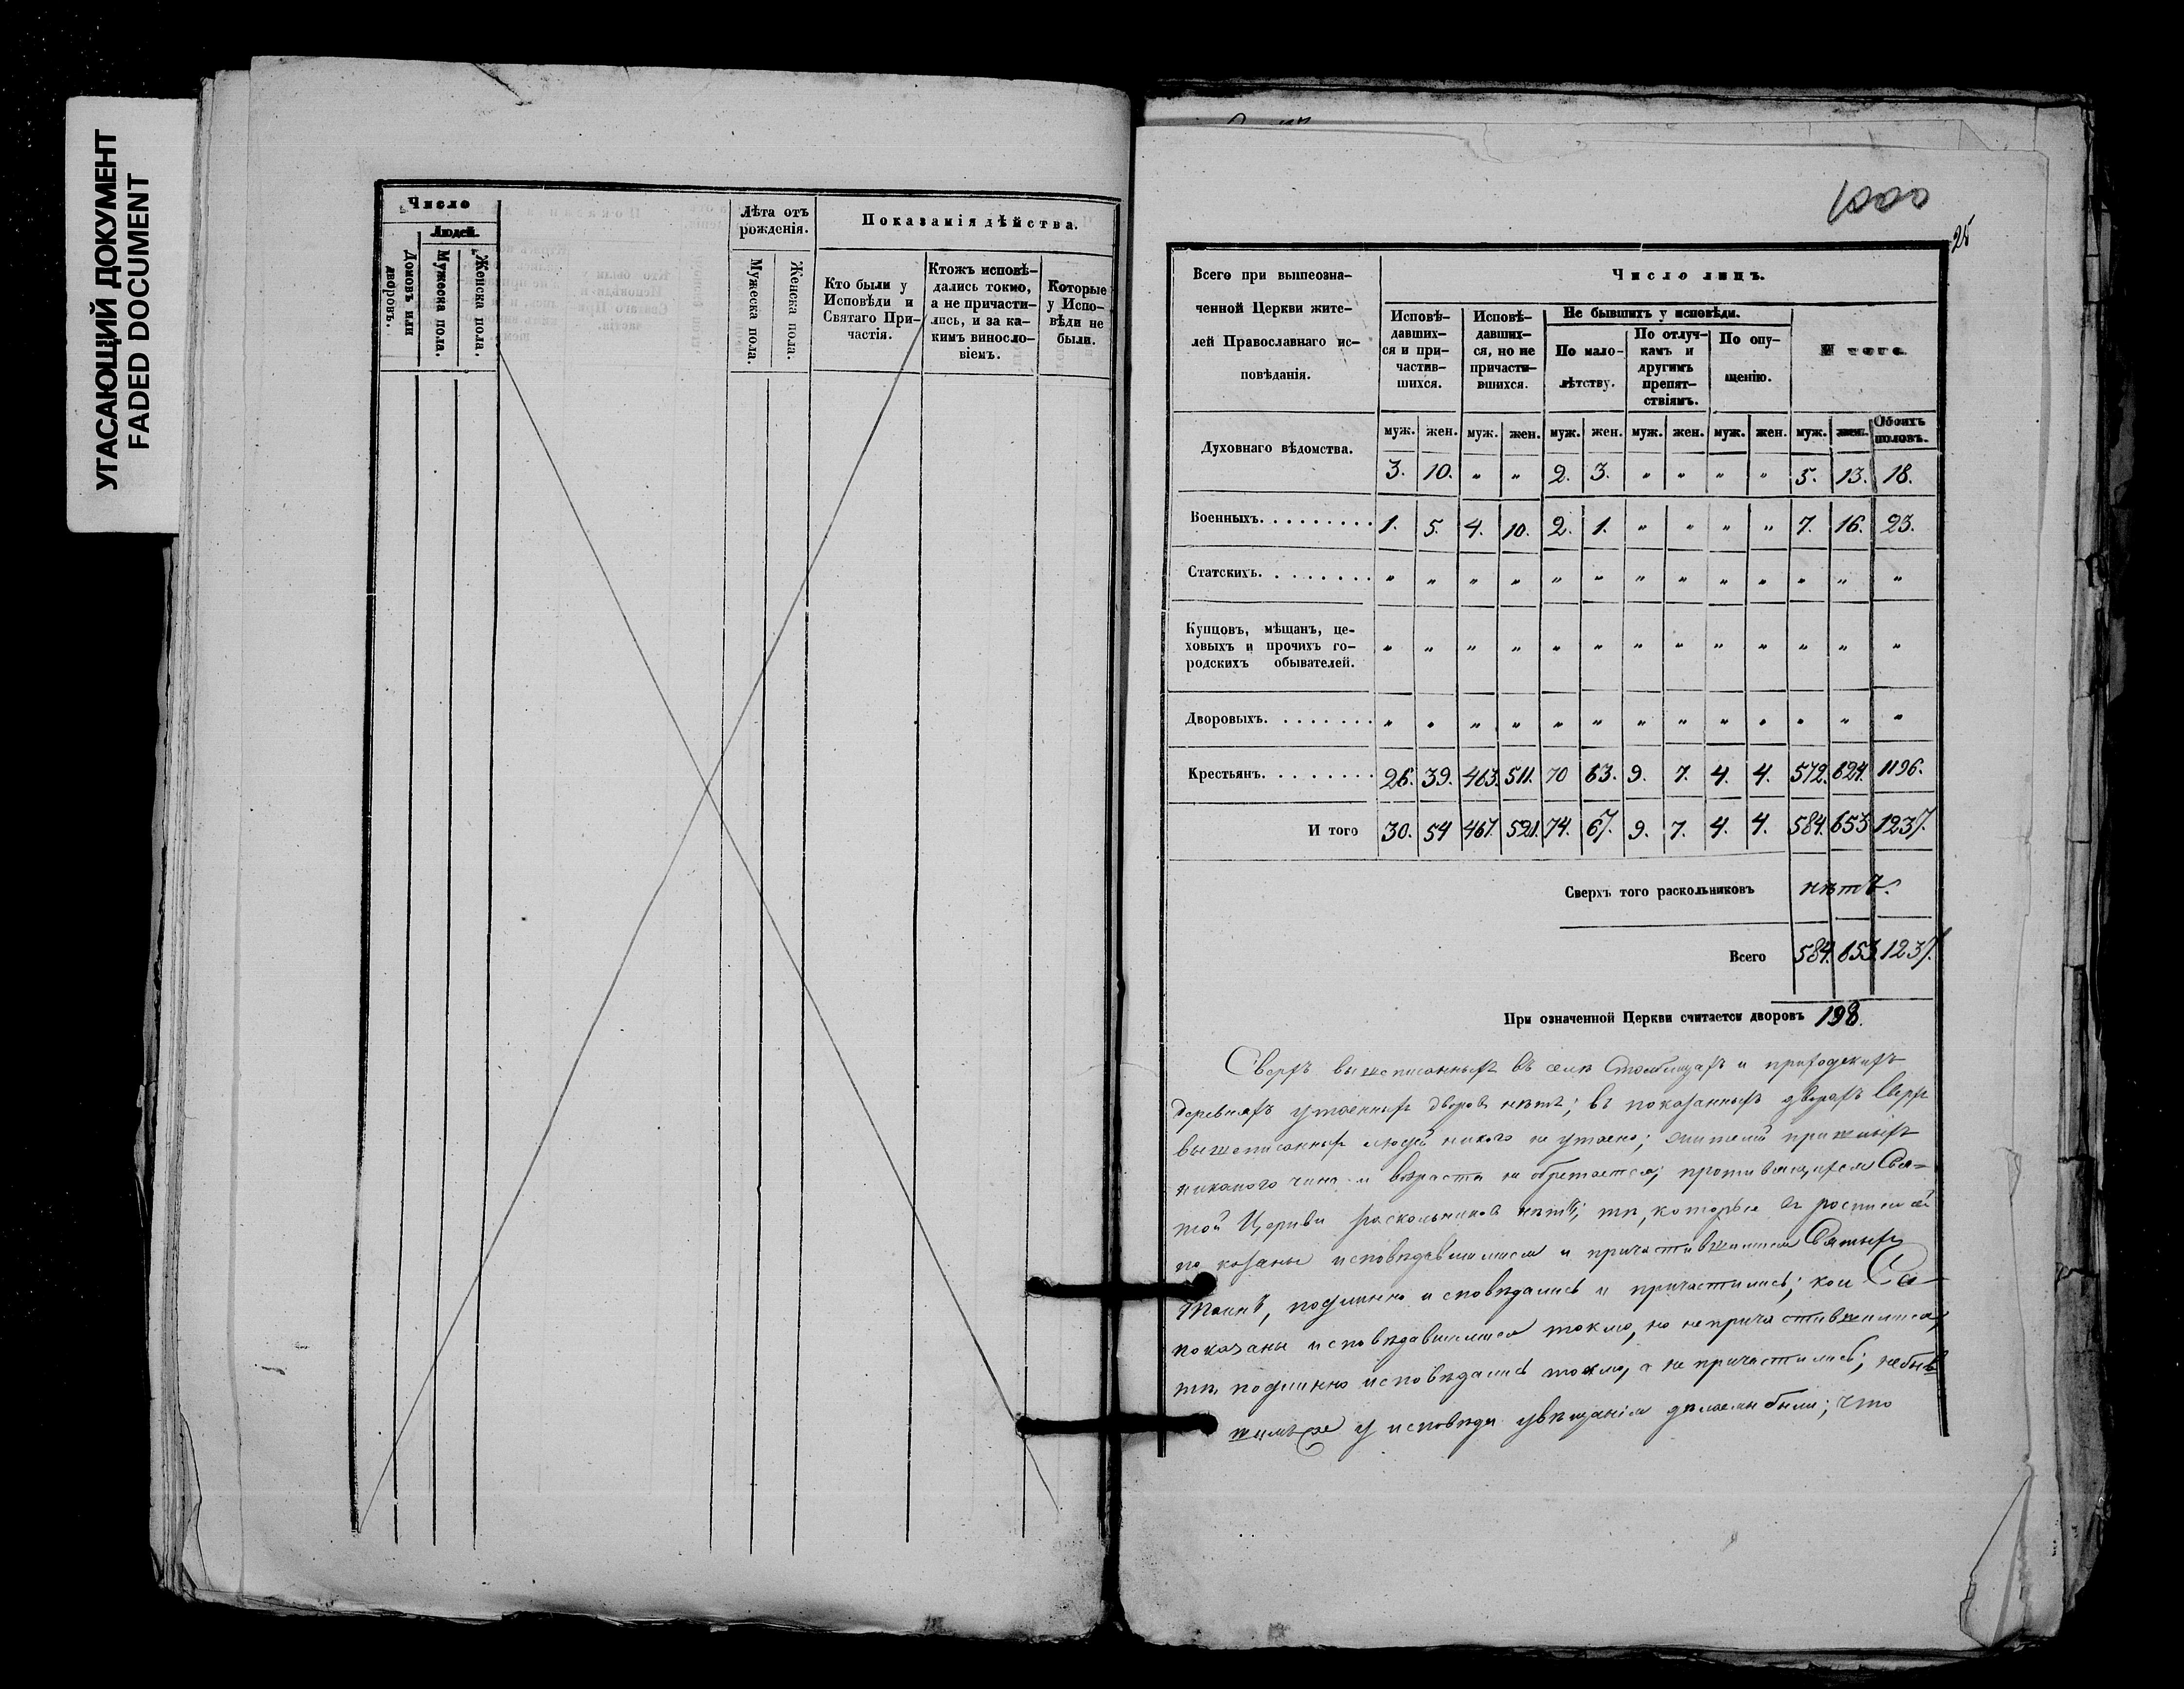 УГАСАЮЩИЙ ДОКУМЕНТ
FADED DOCUMENT
Число
Людей.
Домовъ или дворовъ.
Мужеска пола.
Женска пола.
Лѣта отъ рожденія.
Мужеска пола.
Женска пола.
Показанія дѣйства.
Кто были у
Исповѣди и
Святаго При-
частія.
Ктожъ исповѣ-
дались токмо,
а не причасти-
лись, и за ка-
кимъ винословіемъ.
Которые
у Испо-
вѣди не
были.
1000
25
Всего при вышеозна-
ченной Церкви жите-
лей Православнаго ис-
повѣданія.
Число лицъ.
Исповѣ-
давших-
ся и при-
частив-
шихся.
Исповѣ-
давших-
ся, но не
причасти-
вшихся.
Не бывшихъ у исповѣди.
По мало-
лѣтству.
По отлуч-
камъ и
другимъ
препят-
ствіямъ.
По опу-
щенію.
И того
муж. жен. муж. жен. муж. жен. муж. жен. муж. жен. муж. жен. Обоихъ половъ.
Духовнаго вѣдомства. 3. 10. " " 2. 3. " " " " 5. 13. 18.
Военныхъ. . . . . . . . . 1. 5. 4. 10. 2. 1. " " " " 7. 16. 23.
Статскихъ. . . . . . . . " " " " " " " " " " " " "
Купцовъ, мѣщанъ, це-
ховыхъ и прочихъ го-
родскихъ обывателей. " " " " " " " " " " " " "
Дворовыхъ. . . . . . . . " " " " " " " " " " " " "
Крестьянъ. . . . . . . . . 26. 39. 463. 511. 70 63. 9. 7. 4. 4. 572. 624. 1196.
И того 30. 54 467. 521. 74. 67. 9. 7. 4. 4. 584. 653 1237.
Сверхъ того раскольниковъ нѣтъ.
Всего 584. 653. 1237.
При означенной Церкви считается дворовъ 198.
Сверхъ вышеписанныхъ въ селѣ и приходскихъ
деревняхъ утаенныхъ дворовъ нѣтъ; въ показанныхъ дворахъ сверхъ
вышеписанныхъ людей никого не утаено; жителей пришлыхъ
никакого чина и возраста не обретается; противящихся Свя-
той Церкви раскольниковъ нѣтъ; тѣ, которые въ росписи сей
показаны исповѣдавшимися и причастившимися Святыхъ
Таинъ, подлинно исповѣдались и причастились; кои
показаны исповѣдавшимися токмо, но не причастившимися,
тѣ подлинно исповѣдались токмо, а не причастились; небыв-
шимъ же у исповѣди увѣщанія дѣлаемы были; что